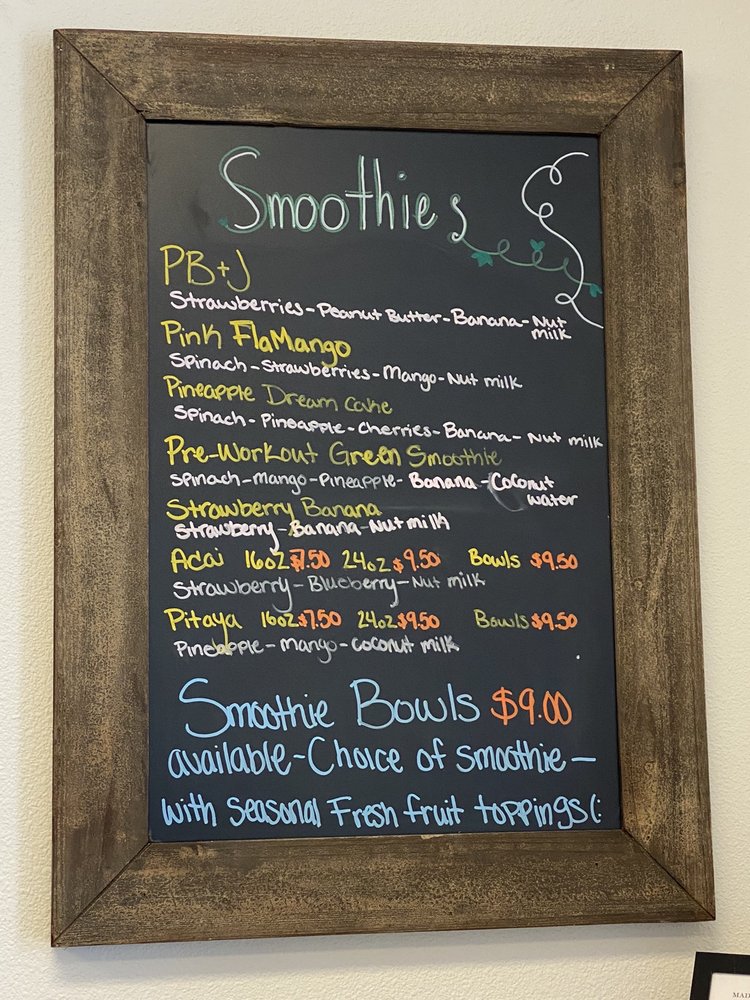 Smoothies
PB+J
Strawberries-Peanut Butter-Banana-Nut
milk
Pink FlaMango
Spinach-Strawberries-Mango-Nut milk
Pineapple Dream Cake
Spinach-Pineapple-Cherries-Banana-Nut milk
Pre-Workout Green Smoothie
Spinach-Mango-Pineapple-Banana-Coconut
water
Strawberry Banana
Strawberry-Banana-Nut milk
Acai 16oz $7.50 24oz $9.50 Bowls $9.50
Strawberry-Blueberry-Nut milk
Pitaya 16oz $7.50 24oz $9.50 Bowls $9.50
Pineapple-mango-coconut milk
Smoothie Bowls $9.00
available-Choice of smoothie-
with seasonal Fresh fruit toppings(: